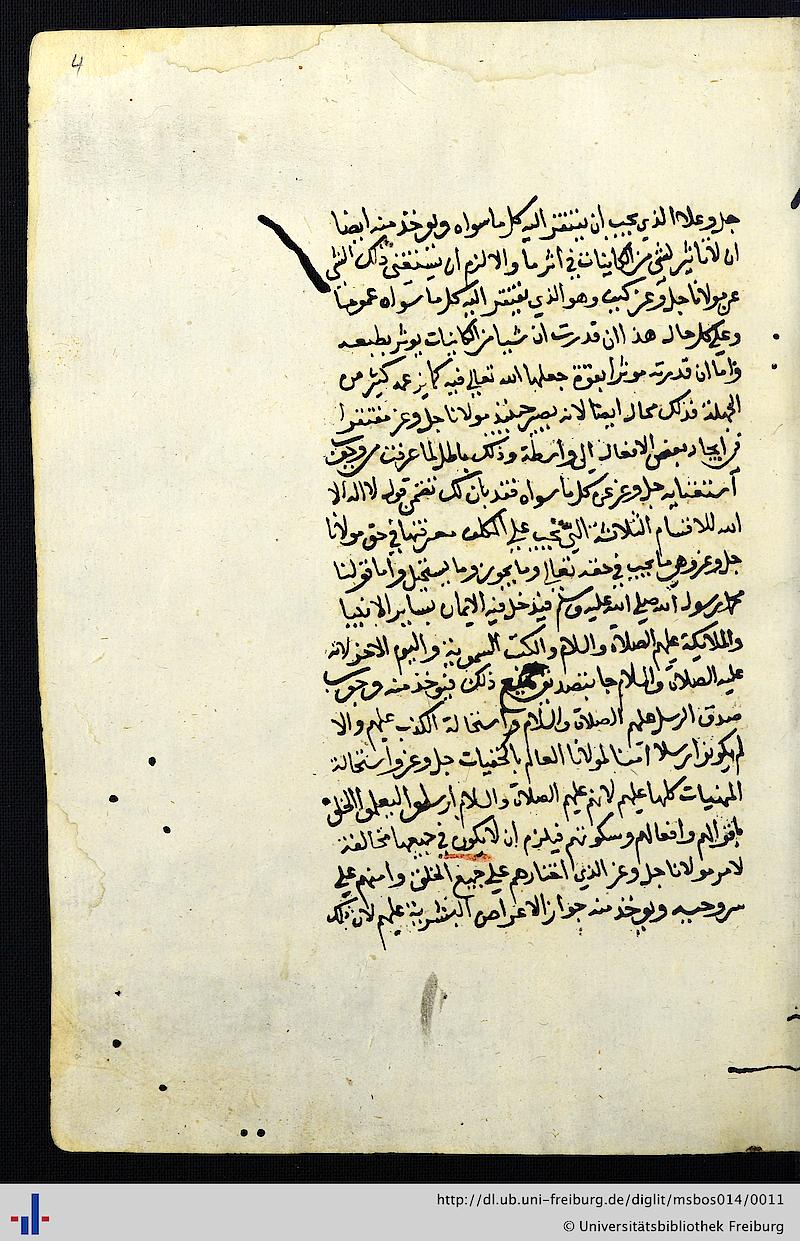 4
جل وعلا الذي يجب ان يفتقر اليه كل ما سواه ويوخذ منه ايضا
ان لا تاثير لشي من الكاينات في اثر ما والا لزم ان يستغني ذلك الشي
عن مولانا جل وعز كيف وهو الذي يفتقر اليه كل ما سواه عموما
وعلي كل حال هذا ان قدرت ان شيا من الكاينات يوثر بطبعه
واما ان قدرته موثرا بقوة جعلها الله تعالي فيه كما يزعمه كثير من
الجهلة فذلك محال ايضا لانه يصير حينئذ مولانا جل وعز مفتقرا
في ايجاد بعض الافعال الي واسطة وذلك باطل لما عرفت من وجوب
استغنايه جل وعز عن كل ما سواه فقد بان لك تضمن قول لا اله الا
الله للاقسام الثلاثة التي يجب علي المكلف معرفتها في حق مولانا
جل وعز وهي ما يجب في حقه تعالي وما يجوز وما يستحيل واما قولنا
محمد رسول الله صلي الله عليه وسلم فيدخل فيه الايمان بساير الانبيا
والملايكة عليهم الصلاة والسلام والكتب السموية واليوم الاخر لانه
عليه الصلاة والسلام جا بتصديق جميع ذلك فيوخذ منه وجوب
صدق الرسل عليهم الصلاة والسلام واستحالة الكذب عليهم والا
لم يكونوا رسلا امنا لمولانا العالم بالخفيات جل وعز واستحالة
المنهيات كلها عليهم لانهم عليهم الصلاة والسلام ارسلوا ليعلموا الخلق
باقوالهم وافعالهم وسكوتهم فيلزم ان لا يكون في جميعها مخالفة
لامر مولانا جل وعز الذي اختارهم علي جميع الخلق وامنهم علي
سر وحيه ويوخذ منه جواز الاعراض البشرية عليهم لان ذلك
http://dl.ub.uni-freiburg.de/diglit/msbos014/0011
© Universitätsbibliothek Freiburg